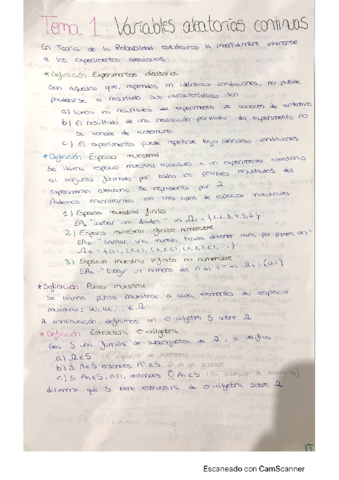 Tema 1: Variables aleatorias continuas
En Teoría de la Probabilidad estudiamos la incertidumbre inherente
a los experimentos aleatorios.
* Definición: Experimentos aleatorios
Son aquellos que, repetidos en idénticas condiciones, no puede
predecirse el resultado. Sus características son:
a) Todos los resultados del experimento se conocen de antemano
b) El resultado de una realización particular del experimento no
se conoce de antemano
c) El experimento puede repetirse bajo idénticas condiciones
* Definición: Espacio muestral
Se llama espacio muestral asociado a un experimento aleatorio
al conjunto formado por todos los posibles resultados del
experimento aleatorio. Se representa por Ω
Podemos encontrarnos con tres tipos de espacios muestrales
1) Espacio muestral finito
EA1 "Lanzar un dado" → Ω = {1,2,3,4,5,6}
2) Espacio muestral infinito numerable
EA2: "Lanzar una moneda hasta obtener cara por primera vez"
3) Espacio muestral infinito no numerable
EA3: "Elegir un número del 0 al 1" → Ω = [0,1]
* Definición: Punto muestral
Se llama punto muestral a cada elemento del espacio
muestral: ω1, ω2, ... ∈ Ω
A continuación, definimos un σ-álgebra S sobre Ω
* Definición: Estructura σ-álgebra
Sea S una familia de subconjuntos de Ω, si verifica
a) Ω ∈ S
b) Si A ∈ S entonces
c) Si Ai ∈ S, entonces
diremos que S tiene estructura de σ-álgebra sobre Ω
Escaneado con CamScanner